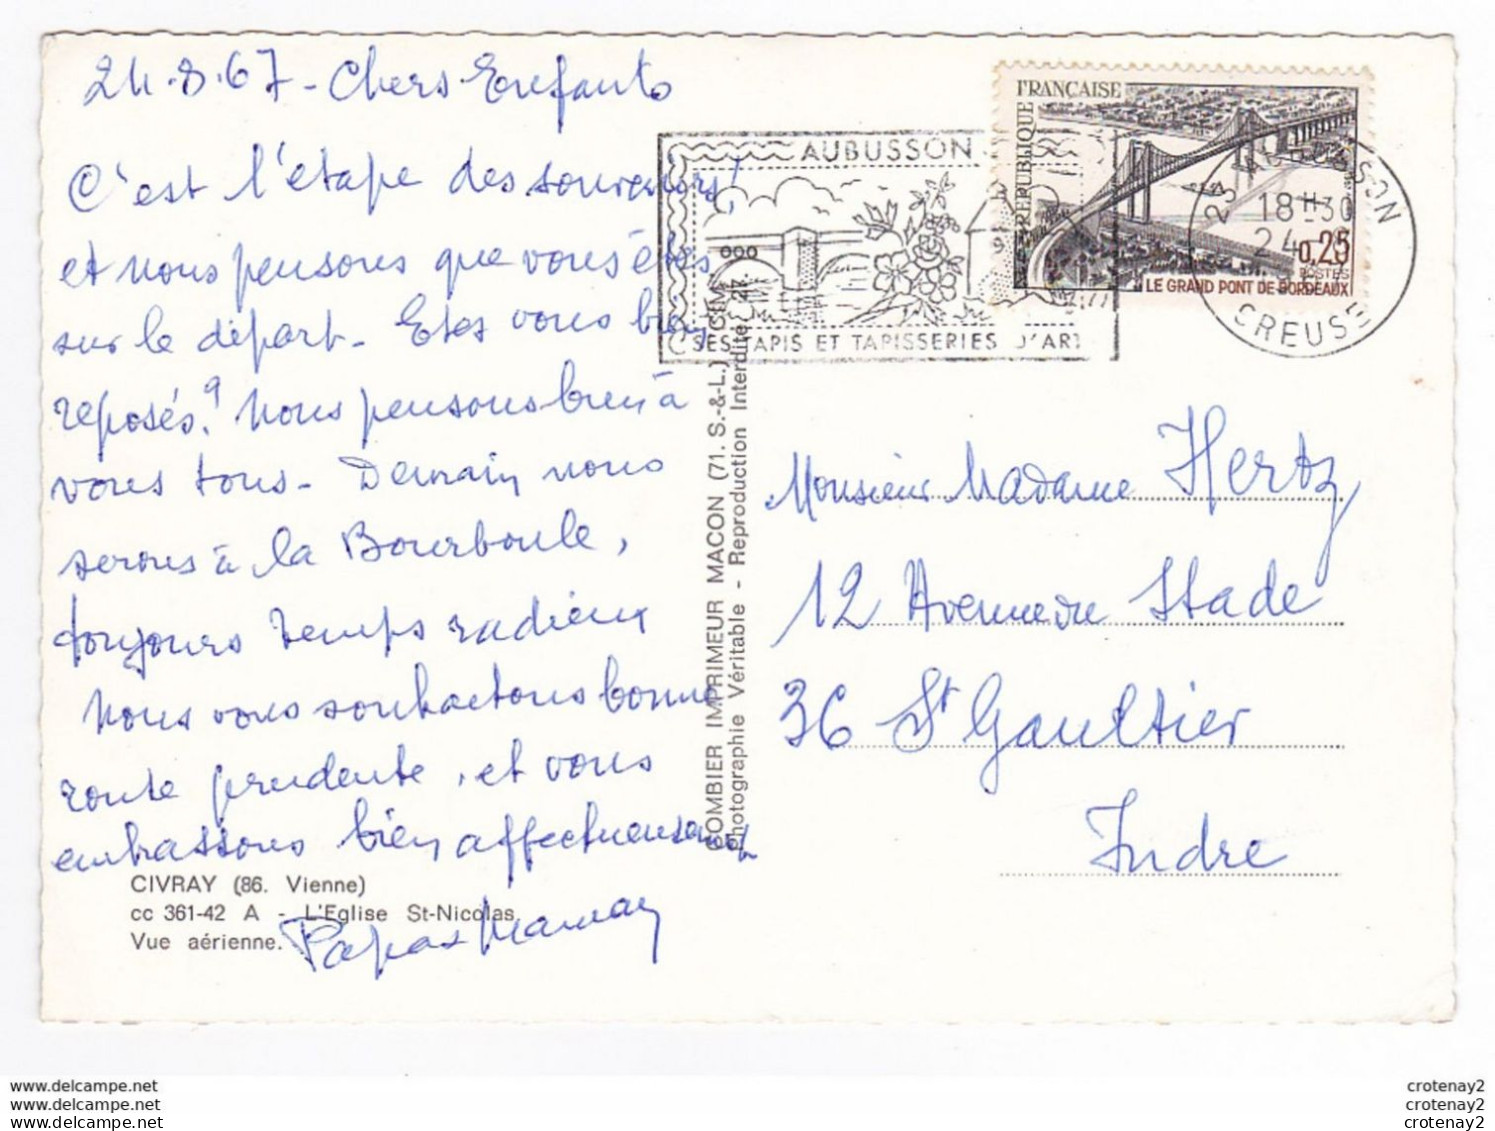 24.8.67 - Chers Enfants
C'est l'étape des souvenirs!
et nous pensons que vous êtes
sur le départ. Etes vous bien
reposés? Nous pensons bien à
vous tous. Demain nous
serons à la Bourboule,
toujours temps radieux
Nous vous souhaitons bonne
route prudente, et vous
embrassons bien affectueusement
CIVRAY (86. Vienne)
cc 361-42 A - L'Eglise St-Nicolas
Vue aérienne.
Papa Maman
COMBIER IMPRIMEUR MACON (71. S.-&-L.) (CIM
Photographie Véritable - Reproduction Interdite
AUBUSSON
SES TAPIS ET TAPISSERIES D'ART
REPUBLIQUE FRANÇAISE
0,25
POSTES
LE GRAND PONT DE BORDEAUX
23
18H30
24-8
CREUSE
Monsieur Madame Hertz
12 Avenue du Stade
36 St Gaultier
Indre
www.delcampe.net
www.delcampe.net
www.delcampe.net
crotenay2
crotenay2
crotenay2